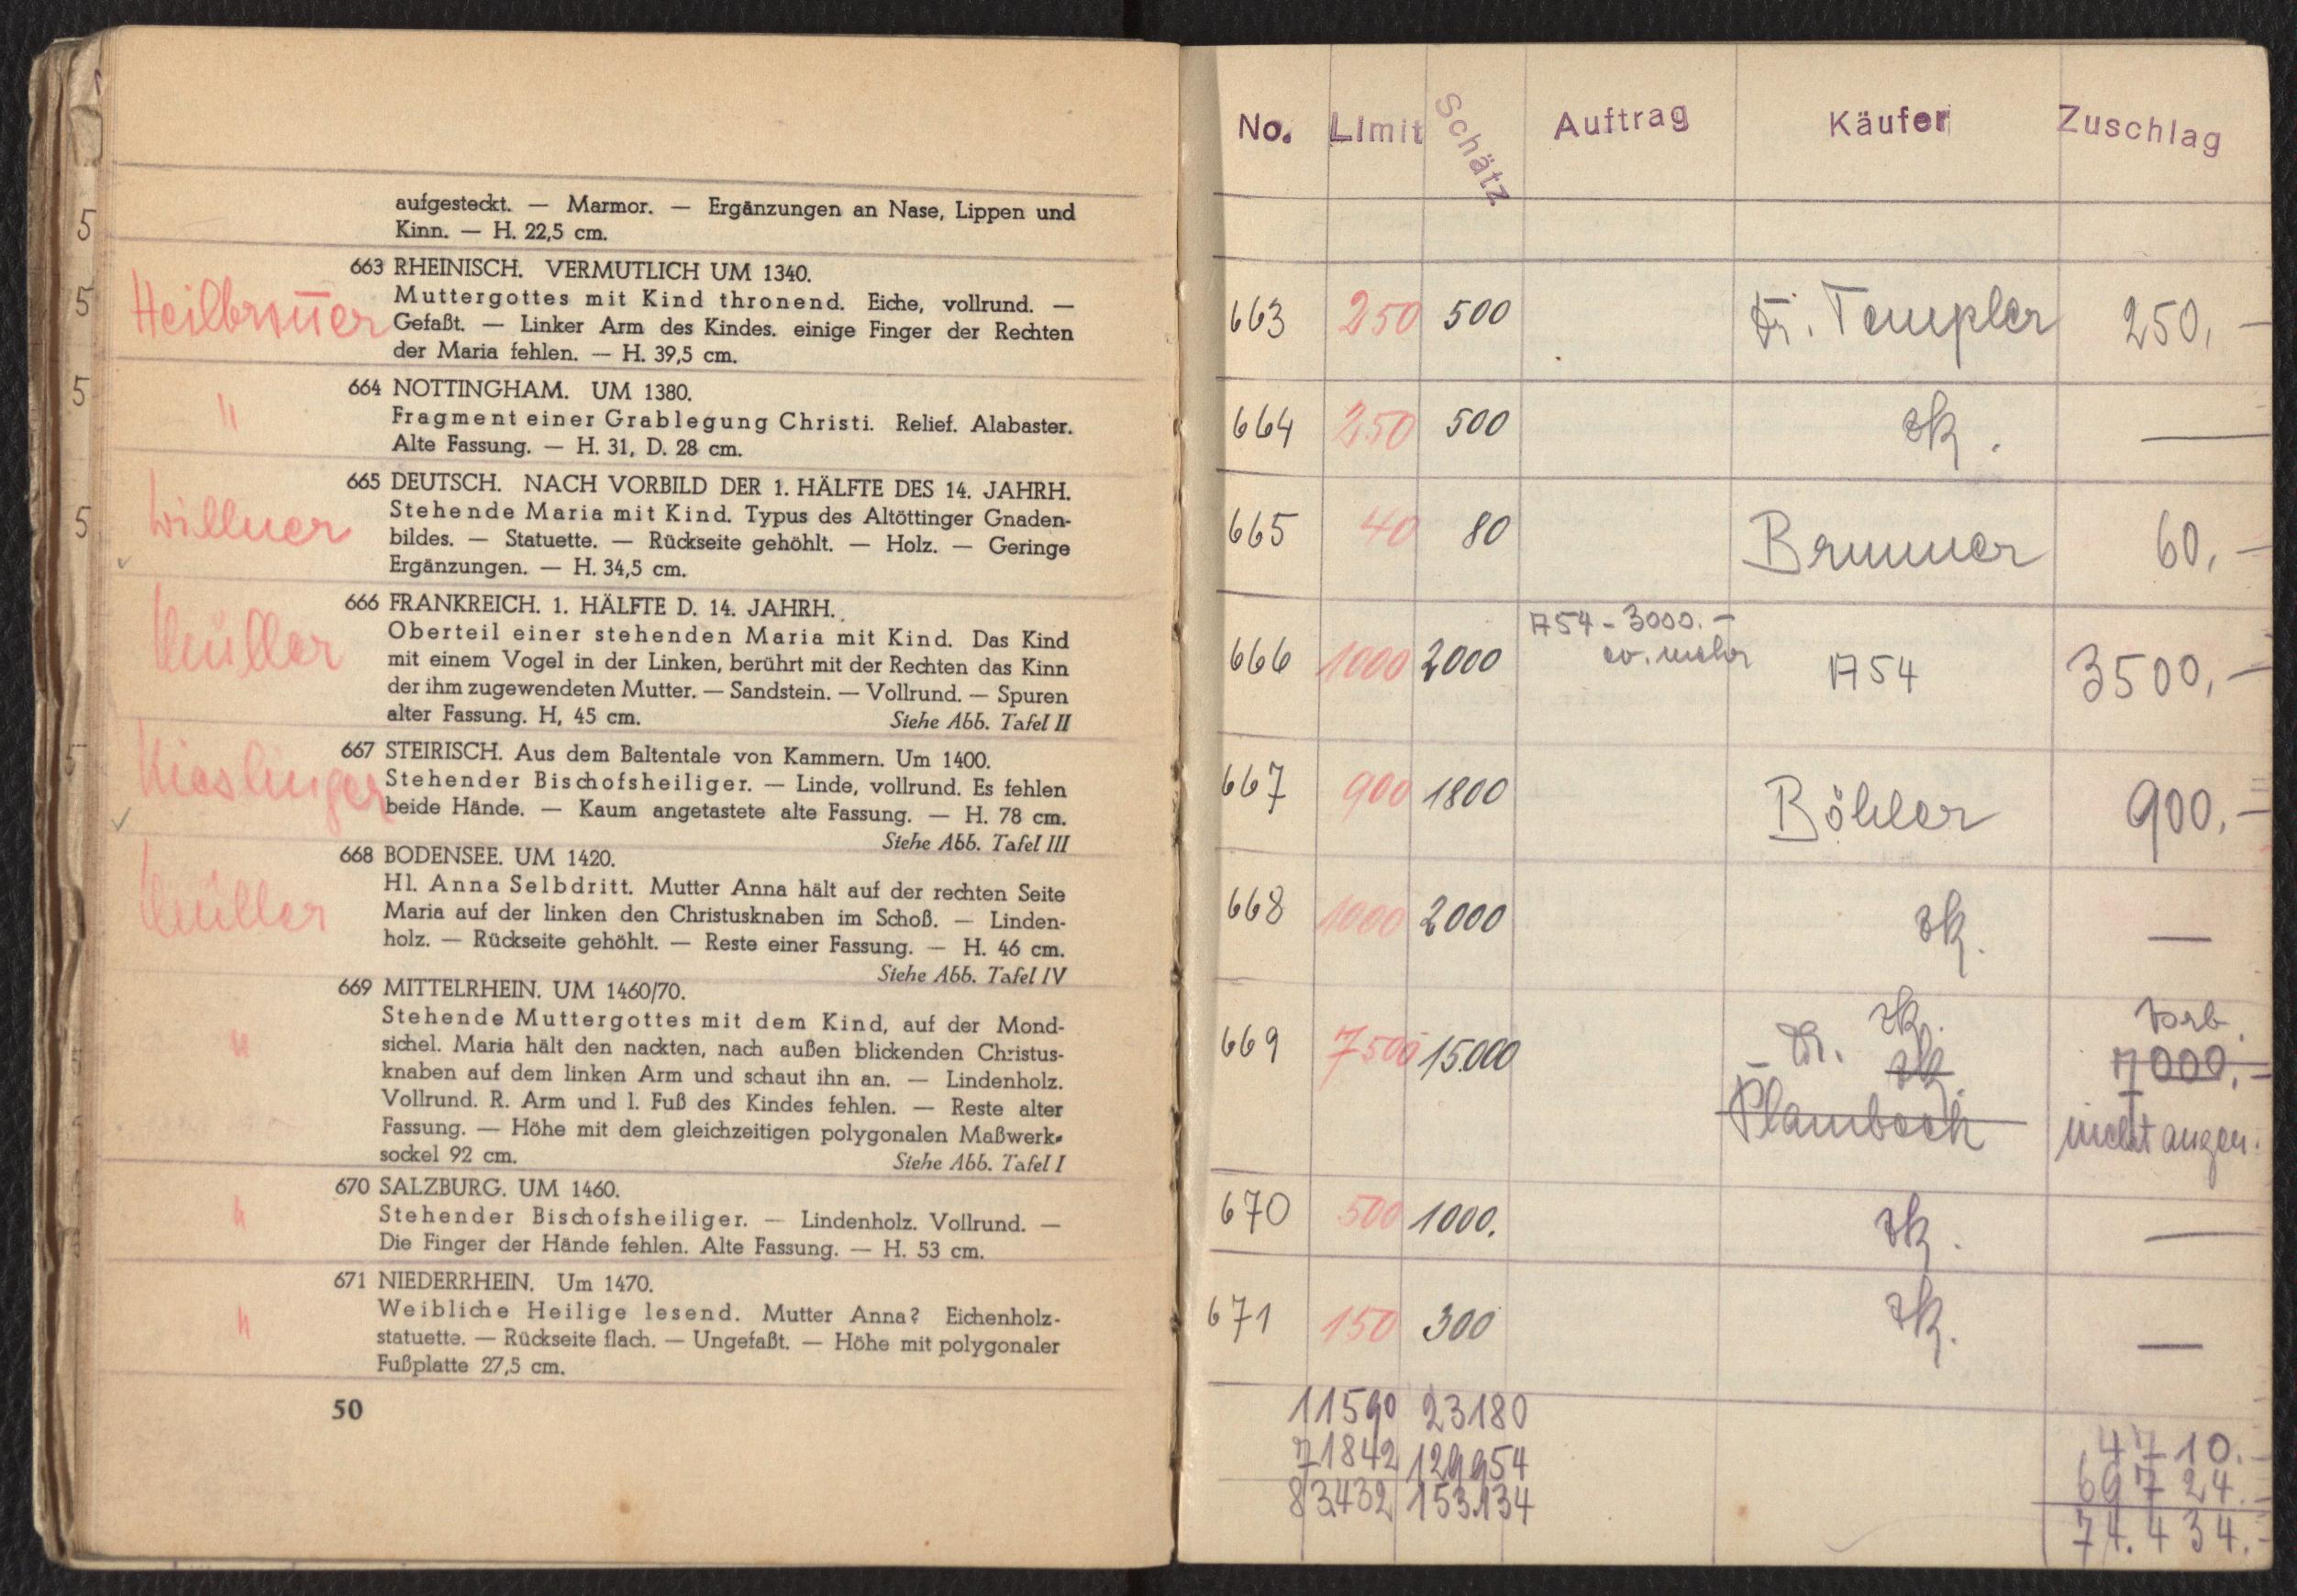 aufgesteckt. — Marmor. — Ergänzungen an Nase, Lippen und
Kinn. — H. 22,5 cm.
663 RHEINISCH. VERMUTLICH UM 1340.
Muttergottes mit Kind thronend. Eiche, vollrund. —
Gefaßt. — Linker Arm des Kindes. einige Finger der Rechten
der Maria fehlen. — H. 39,5 cm.
664 NOTTINGHAM. UM 1380.
Fragment einer Grablegung Christi. Relief. Alabaster.
Alte Fassung. — H. 31, D. 28 cm.
665 DEUTSCH. NACH VORBILD DER 1. HÄLFTE DES 14. JAHRH.
Stehende Maria mit Kind. Typus des Altöttinger Gnaden-
bildes. — Statuette. — Rückseite gehöhlt. — Holz. — Geringe
Ergänzungen. — H. 34,5 cm.
666 FRANKREICH. 1. HÄLFTE D. 14. JAHRH.
Oberteil einer stehenden Maria mit Kind. Das Kind
mit einem Vogel in der Linken, berührt mit der Rechten das Kinn
der ihm zugewendeten Mutter. — Sandstein. — Vollrund. — Spuren
alter Fassung. H, 45 cm. Siehe Abb. Tafel II
667 STEIRISCH. Aus dem Baltentale von Kammern. Um 1400.
Stehender Bischofsheiliger. — Linde, vollrund. Es fehlen
beide Hände. — Kaum angetastete alte Fassung. — H. 78 cm.
Siehe Abb. Tafel III
668 BODENSEE. UM 1420.
Hl. Anna Selbdritt. Mutter Anna hält auf der rechten Seite
Maria auf der linken den Christusknaben im Schoß. — Linden-
holz. — Rückseite gehöhlt. — Reste einer Fassung. — H. 46 cm.
Siehe Abb. Tafel IV
669 MITTELRHEIN. UM 1460/70.
Stehende Muttergottes mit dem Kind, auf der Mond-
sichel. Maria hält den nackten, nach außen blickenden Christus-
knaben auf dem linken Arm und schaut ihn an. — Lindenholz.
Vollrund. R. Arm und l. Fuß des Kindes fehlen. — Reste alter
Fassung. — Höhe mit dem gleichzeitigen polygonalen Maßwerk-
sockel 92 cm. Siehe Abb. Tafel I
670 SALZBURG. UM 1460.
Stehender Bischofsheiliger. — Lindenholz. Vollrund. —
Die Finger der Hände fehlen. Alte Fassung. — H. 53 cm.
671 NIEDERRHEIN. Um 1470.
Weibliche Heilige lesend. Mutter Anna? Eichenholz-
statuette. — Rückseite flach. — Ungefaßt. — Höhe mit polygonaler
Fußplatte 27,5 cm.
50
5
5
5
5
5
Heilbronner
"
Willner
Müller
Kieslinger
Müller
"
"
"
No. Limit Schätz. Auftrag Käufer Zuschlag
663 250 500 Dr. Templer 250,—
664 250 500 zk. —
665 40 80 Brunner 60,—
1754 - 3000.—
ev. mehr
666 1000 2000 1754 3500,—
667 900 1800 Böhler 900,—
668 1000 2000 zk. —
zk. Vorb.
669 7500 15.000 — Dr. zk. 7000,—
Plambeck nicht angen.
670 500 1000. zk. —
671 150 300 zk. —
11590 23180
71842 129954
83432 153.134
4710.—
69724.—
74.434.—